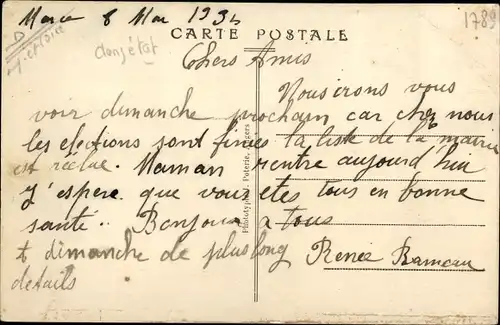 8 Mai 1935
1789
CARTE POSTALE
Chers Amis
Nous irons vous
voir dimanche prochain car chez nous
les elections sont finies la liste de la mairie
est réélue. Maman rentre aujourd'hui
J'espère que vous êtes tous en bonne
santé. Bonjour a tous
et dimanche de plus long
details
Renée Rameau